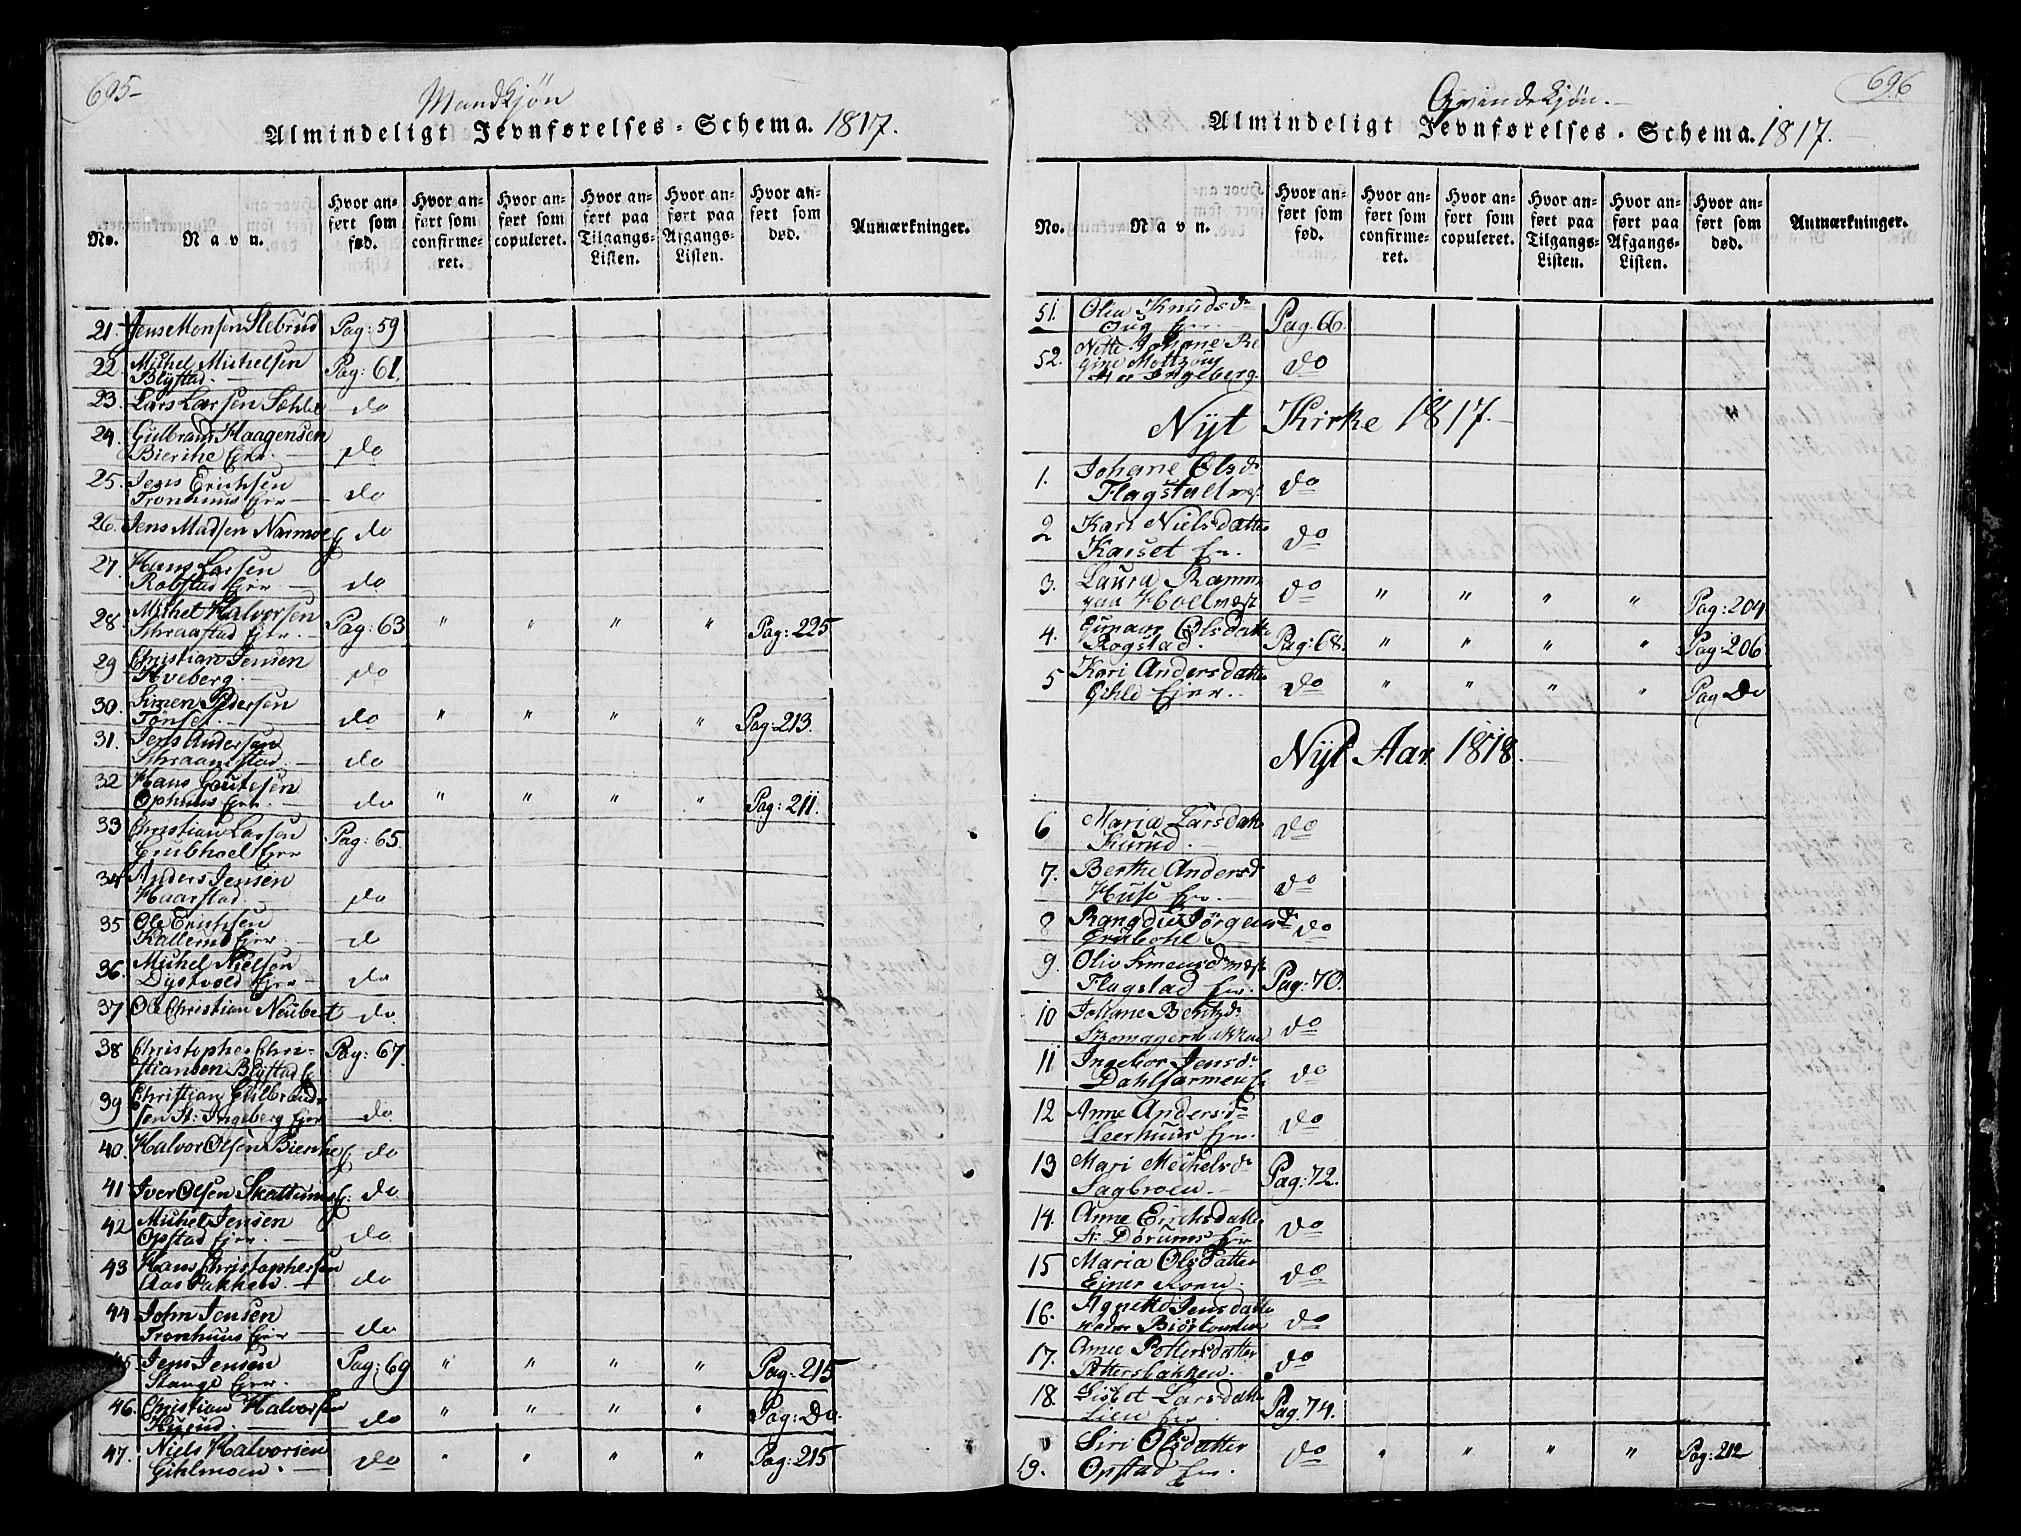 695
Mandkjøn
Almindeligt Jevnførelses-Schema. 1817.
No.
Navn.
Hvor anført som fød.
Hvor anført som confirmeret.
Hvor anført som copuleret.
Hvor anført paa Tilgangs-Listen.
Hvor anført paa Afgangs-Listen.
Hvor anført som død.
Anmærkninger.
21. Jens Monsen Slebrud Pag: 59
22. Michel Michelsen
Blÿstad. Pag: 61.
23. Lars Larsen Sæhle do
24. Gulbrand Haagensen
Bierche Eier. do
25. Jens Erichsen
Tronhuus Eier do
26. Jens Madsen Narmoe do
27. Hans Larsen
Robstad Eier do
28. Michel Halvorsen
Schraastad Eier. Pag: 63 " " " " Pag: 225
29 Christian Jensen
Hveberg. do
30. Simen Pedersen
Tønset. do " " " " Pag: 213.
31. Jens Andersen
Schraamstad do
32 Hans Goutesen
Ophuus Eier. do " " " " Pag: 211.
33 Christian Larsen
Grubhoel Eier Pag: 65
34 Anders Jensen
Haarstad do
35 Ole Erichsen
Kallerud Eier do
36. Michel Nielsen
Dystvold Eier do
37 Ole Christian Neubert do
38 Christopher Chri-
stiansen Blÿstad E Pag: 67.
39 Christian Gulbrand-
sen St: Ingeberg Eier do
40. Halvor Olsen Bierche do
41 Iver Olsen Skattum do
42 Michel Jensen
Opstad Eier. do
43 Hans Christophersen
Aas Bakken. do
44 John Jensen
Tronhuus Eier do
45 Jens Jensen
Stange Eier. Pag: 69 " " " " Pag: 215
46. Christian Halvorsen
Kurud. do " " " " Pag: Do.
47. Niels Halvorsen
Gihlmoen. do " " " " Pag: 215
696
Qvindekjøn.
Almindeligt Jevnførelses-Schema. 1817.
No.
Navn.
Hvor anført som fød.
Hvor anført som confirmeret.
Hvor anført som copuleret.
Hvor anført paa Tilgangs-Listen.
Hvor anført paa Afgangs-Listen.
Hvor anført som død.
Anmærkninger.
51. Olia Knudsdr
Eier Pag. 66.
52. Nette Johane Re
gine Moltzoug
Ingeberg. do
Nyt Kirke 1817.
1. Johane Olsdr
Flagstad do
2 Kari Nielsdatter
Karset Eier. do
3. Laura Ramm
paa Hoel do " " " " Pag: 204
4. Olsdatter
Rogstad. Pag: 68. " " " " Pag: 206
5 Kari Andersdatter
Gihle Eier. do " " " " Pag Do
Nyt Aar 1818.
6 Maria Larsdatter
Kurud. do
7. Berthe Andersdr
Huse Eier. do
8 Rangdie Jørgensdr
Grubohl do
9. Olive Simensdr
Flagstad Eier. Pag: 70.
10 Johane Berntzdr
Skomagerbakken do
11 Ingebor Jensdr
Dahlsarmen do
12 Anne Andersdr
Leerhuus Eier. do
13 Mari Mechelsdr
Sagbroen. Pag: 72.
14. Anne Ericksdatter
St: Dørums Eier do
15 Maria Olsdatter
Ejner Roen. do
16. Agnethe Jensdatter
neder Biørtomten do
17. Anne Pettersdatter
Petterbakken. do
18. Lisbet Larsdatter
Lien Eier Pag. 74.
19. Siri Olsdatter
Opstad Eier. do " " " " Pag: 212